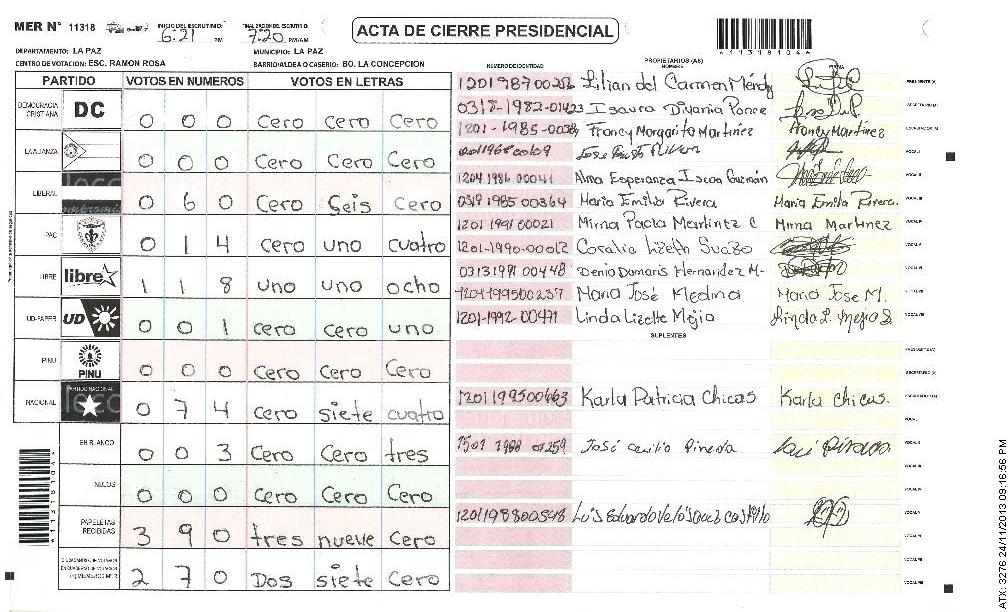 MER N° 11318 INICIO DEL ESCRUTINIO: 6:21 PM FINALIZACION DEL ESCRUTINIO: 7:20 PM/AM
ACTA DE CIERRE PRESIDENCIAL
A11319104A
DEPARTAMENTO: LA PAZ MUNICIPIO: LA PAZ
CENTRO DE VOTACION: ESC. RAMON ROSA BARRIO/ALDEA O CASERIO: BO. LA CONCEPCION
PARTIDO VOTOS EN NUMEROS VOTOS EN LETRAS
DEMOCRACIA CRISTIANA DC 0 0 0 Cero Cero Cero
LA ALIANZA 0 0 0 Cero Cero Cero
LIBERAL 0 6 0 Cero Seis Cero
PAC 0 1 4 cero uno cuatro
LIBRE libre 1 1 8 uno uno ocho
UD-FAPER UD 0 0 1 cero cero uno
PINU PINU 0 0 0 Cero Cero Cero
NACIONAL PARTIDO NACIONAL 0 7 4 Cero siete cuatro
EN BLANCO 0 0 3 Cero Cero tres
NULOS 0 0 0 Cero Cero Cero
PAPELETAS RECIBIDAS 3 9 0 tres nueve Cero
2 7 0 Dos siete Cero
PROPIETARIOS (AS)
NUMERO DE IDENTIDAD NOMBRE FIRMA
Lilian del Carmen Méndez PRESIDENTE(A)
0318-1982-01423 Isaura Divania Ponce SECRETARIO(A)
Francy Margarita Martinez Francy Martinez ESCRUTADOR(A)
VOCAL I
1204 1986 00041 Alma Esperanza Iscoa Guzmán VOCAL II
0319 1985 00364 Maria Emilia Rivera Maria Emilia Rivera. VOCAL III
1201 1991 00021 Mirna Paola Martinez C Mirna Martinez VOCAL IV
1201-1990-00012 Coralia Lizeth Suazo VOCAL V
0313 1991 00448 Denia Damaris Hernandez M- VOCAL VI
1204199500237 Maria José Medina Maria Jose M. VOCAL VII
1201-1992-00471 Linda Lizette Mejia Linda L. Mejia S. VOCAL VIII
SUPLENTES
PRESIDENTE(A)
SECRETARIO(A)
1201199500663 Karla Patricia Chicas Karla Chicas. ESCRUTADOR(A)
VOCAL I
1501 1988 01259 José Cecilio Pineda VOCAL II
VOCAL III
VOCAL IV
1201198800548 Luis Eduardo Velásquez Castillo VOCAL V
VOCAL VI
VOCAL VII
VOCAL VIII
ATX: 3276 24/11/2013 09:16:56 PM